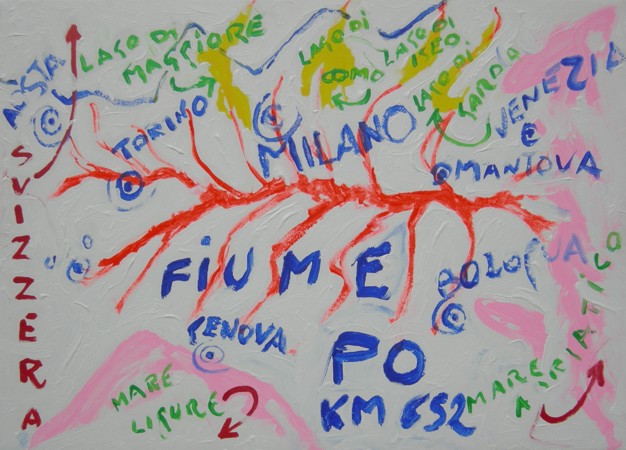 AOSTA
LAGO DI
MAGGIORE
LAGO DI
COMO
LAGO DI
ISEO
LAGO DI
GARDA
VENEZIA
TORINO
MILANO
MANTOVA
SVIZZERA
FiUME
PO
KM 652
BOLOGNA
GENOVA
MARE
LIGURE
MARE
ADRIATICO